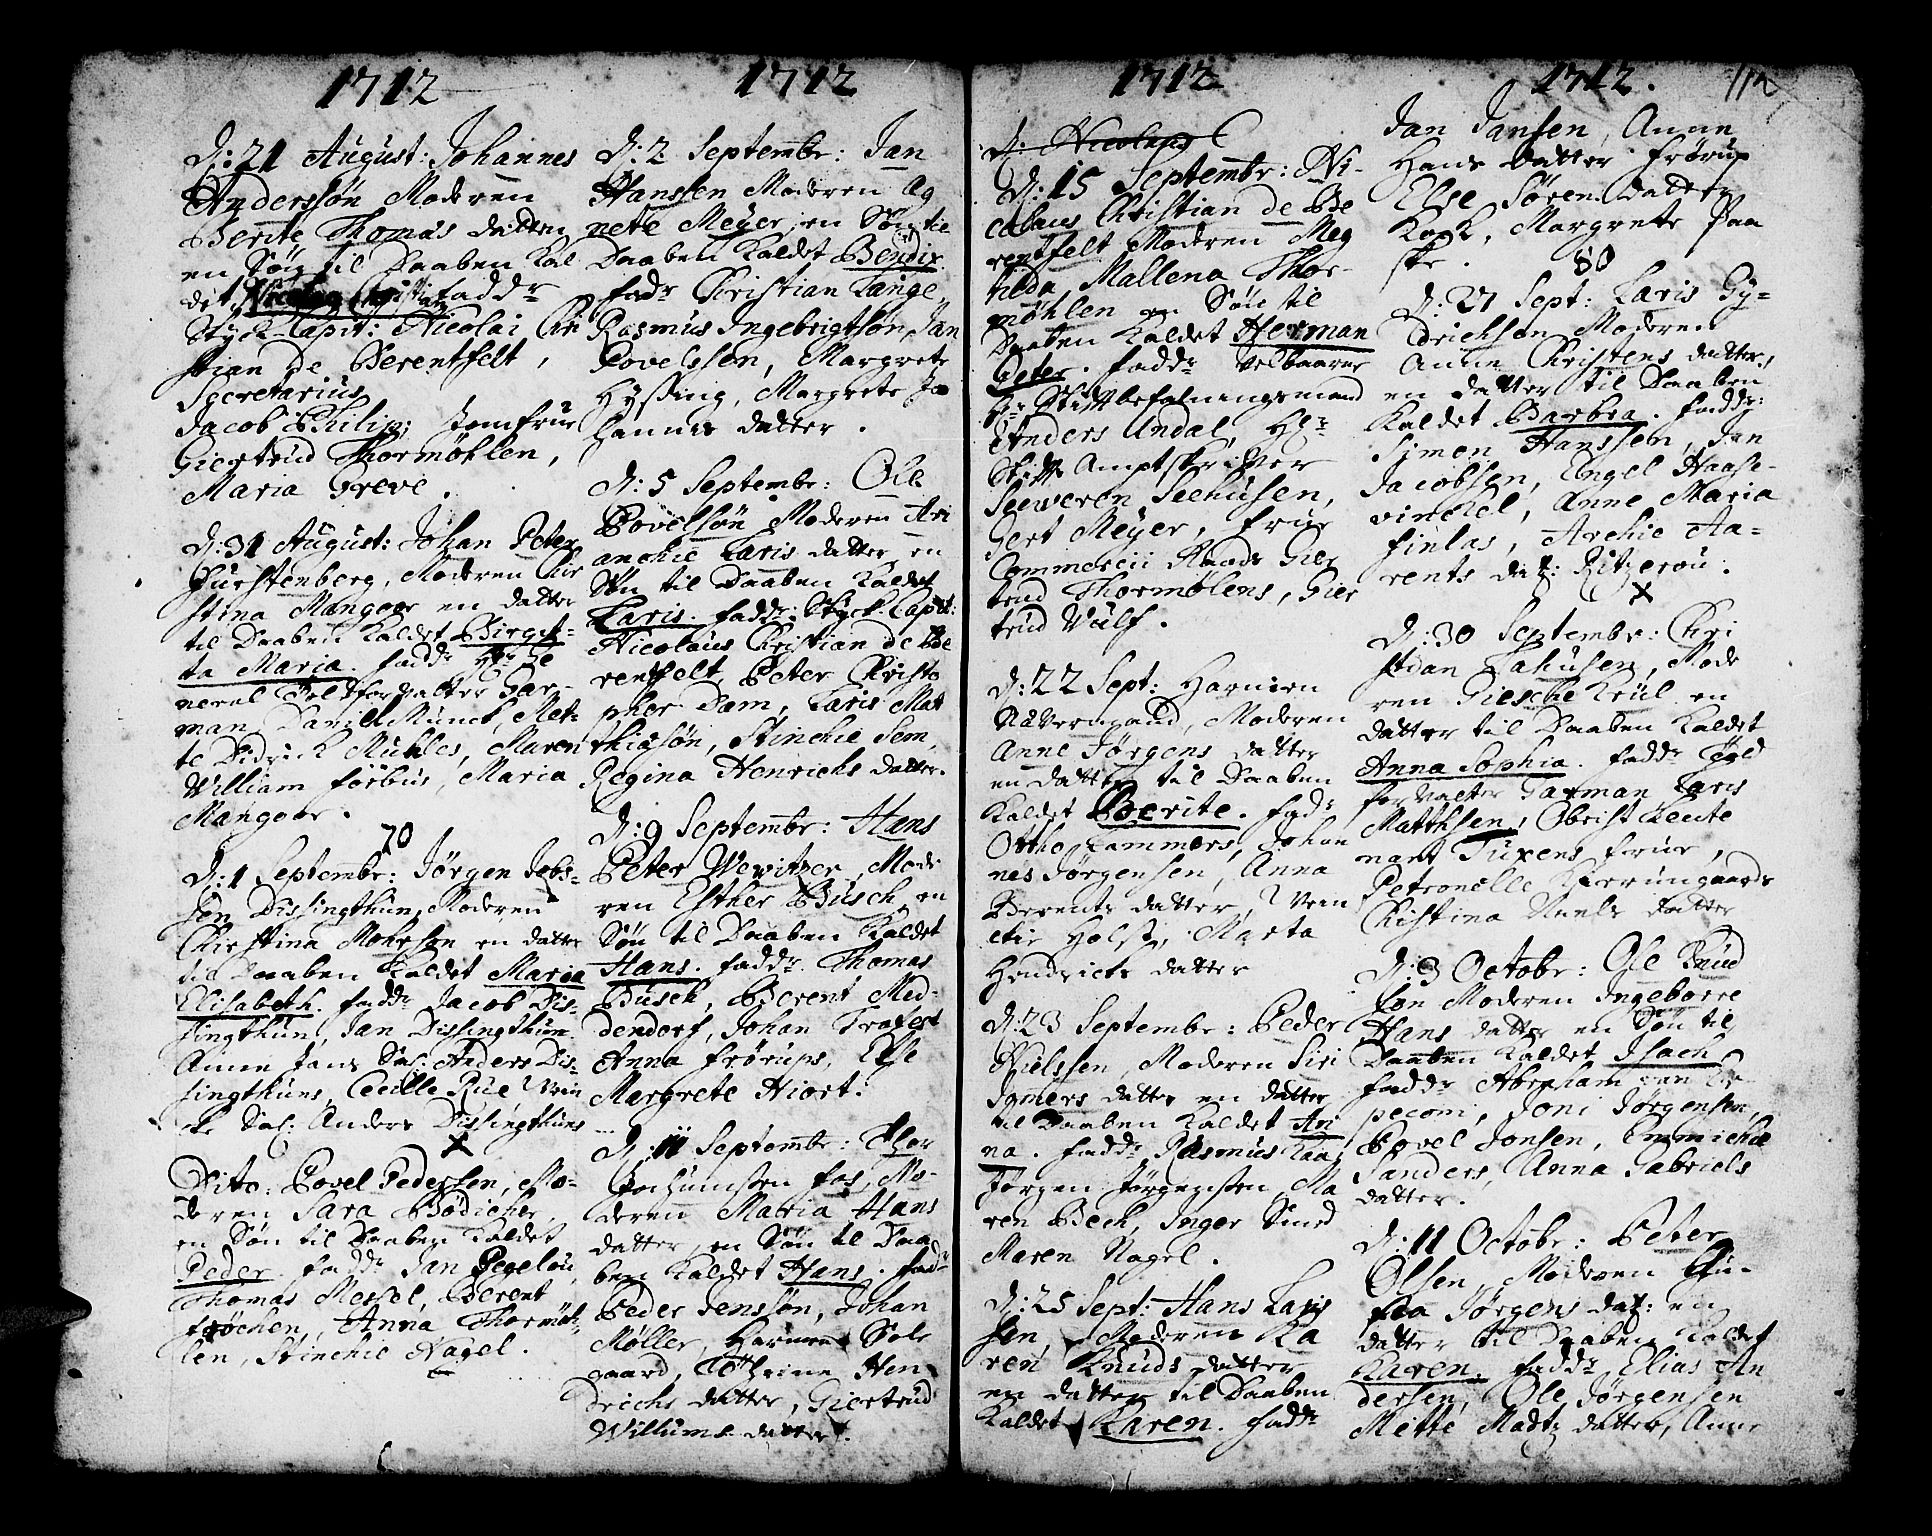 1712
D: 21 August: Johannes
Anderssøn Moderen
Berite Thomas datter
en Søn til Daaben Kal
det Nicolaj Christian fadd:r
Styck Capit: Nicolai Chri
stian de Berentfelt,
Secretarius
Jacob Philip; Jomfrue
Giertrud Thormøhlen,
Maria Greve.
D: 31 August: Johan Peter
Furstenberg, Moderen Chir
stina Mangoor en datter
til Daaben Kaldet Birgit-
ta Maria. fadd:r H:r Ge
neral Feltforvalter Gar-
man, David Munck, Met-
te Didrick Mühles, Maren
William forbus, Maria
Mangoor.
70
D: 1 Septembr: Jørgen Jebs-
sen Dissingthun, Moderen
Christina Mohrsen en datter
til Daaben Kaldet Maria
Elisabeth. fadd:r Jacob Dis-
singthun, Jan Dissingthun
Anne Jans Sal: Anders Dis-
singthuns, Cecille Rue Wen
che Sal: Anders Dissingthuns
x
Dito: Povel Pedersen, Mo-
deren Sara Bødicher
en Søn til Daaben Kaldet
Peder. fadd:r Jan Pegelou,
Thomas Messel, Berent
frøchen, Anna Thormøh-
len, Stinchie Nagel.
1712
D: 2 Septembr: Jan
Hanssen Moderen Ag
nete Meyer, en Søn til
Daaben Kaldet Bendix
fad:r Christian Lange
Rasmus Ingebrigtsøn, Jan
Povelssøn, Margrete
Hyssing, Margrete Jo
hannis datter.
D: 5 Septembr: Ole
Povelsøn Moderen Ari
anchie Laris datter en
Søn til Daaben Kaldet
Laris. fadd:r Styck Capit:
Nicolaus Christian de Be
rentfelt, Peter Christo
pher Dam, Laris Mat
thigsøn, Stinchie Sem,
Regina Henrichs datter.
D: 9 Septembr: Hans
Peter Wewitzer, Mode
ren Esther Busch, en
Søn til Daaben Kaldet
Hans. fadd:r Thomas
Busch, Berent Med-
dendorf, Johan Trafest
Anna frørups, Else
Margrete Hiort.
D: 11 Septembr: Thor
Jochumssen fos, Mo-
deren Maria Hans
datter, en Søn til Daa
ben Kaldet Hans. fad:r
Peder Jenssøn, Johan
Møller, Harmen Sole
gaard, Cathrine Hen
drichs datter, Giertrud
Willums datter.
1712
D: Nicolaus
D: 15 Septembr: Ni-
colaus Christian de Be
rentfelt Moderen Meg
tilda Mallena Thor-
møhlen en Søn til
Daaben Kaldet Herman
Peter. fadd:r Velbaarne
H:r Stiftbefalningsmand
Anders Undal, H:r
Stifts Amptskriver
Seweren Seehusen,
Gert Meyer, frue
Commercii Raads Gier
trud Thormølens, Gier
trud Wulf.
D: 22 Sept: Harmen
Ravermand, Moderen
Anne Jørgens datter
en datter til Daaben
Kaldet Berite. fad:r
Ottho Lammers, Johan
nes Jørgensen, Anna
Berents datter, Wen
chie Holst, Marta
Hendrichs datter
D: 23 Septembr: Peder
Nielssen, Moderen Siri
Jgmers datter en datter
til Daaben Kaldet An
na. fadd:r Rasmus Kaa
Jørgen Jørgenssen, Ma
ren Beck, Inger Smed
Maren Nagel.
D: 25 Sept: Hans Laris
sen, Moderen Ka
ren Knuds datter
en datter til Daaben
Kaldet Karen. fadd:r
1712. 112
Jan Jansen, Anne
Hans datter frørup
Else Søren datter
Kock, Margrete Paa
ske.
80
D: 27 Sept: Laris Gy-
drichsøn Moderen
Anne Christens datter,
en datter til Daaben
Kaldet Barbra. fadd:r
Simon Hanssen, Jan
Jacobsen, Engel Haase-
vinchel, Anne Maria
finlas, Archie Aa-
rents dat: Ritzerou.
x
D: 30 Septembr: Chri
stian Jahusen, Mode
ren Giesche Krul en
datter til Daaben Kaldet
Anna Sophia. fadd:r Told
forvalter Garman Laris
Matthsen, Obrist Leute
nant Tuxens frue,
Petronelle Hierungaards
Christina Niels datter
D: 3 Octobr: Ole Knud
søn Moderen Ingeborre
Hans datter en Søn til
Daaben Kaldet Isach
fadd:r Abraham van Le
pecom, Joni Jørgensen,
Povel Jonsen, Emmichie
Sanders, Anna Gabriels
datter.
D: 11 Octobr: Peter
Olsen, Moderen Gu-
roa Jørgens dat: en
datter til Daaben Kaldet
Karen. fadd:r Elias An
dersen, Ole Jørgensen
Mette Madtz datter, Anne